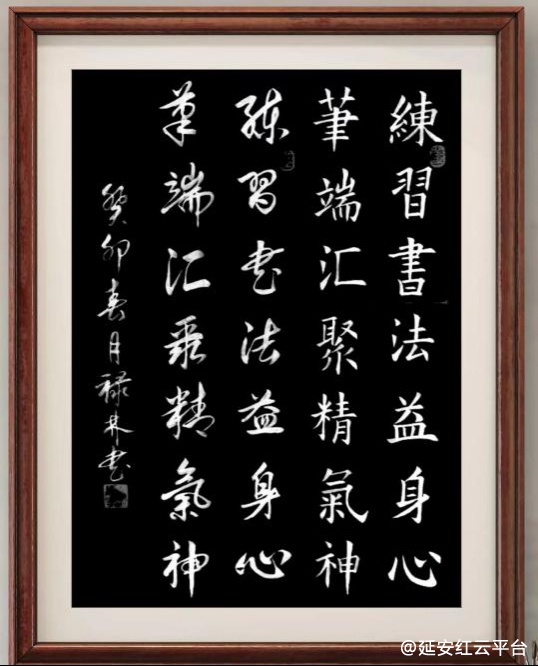 練習書法益身心
筆端汇聚精氣神
练習书法益身心
笔端汇聚精氣神
癸卯春月禄林书
@延安红云平台